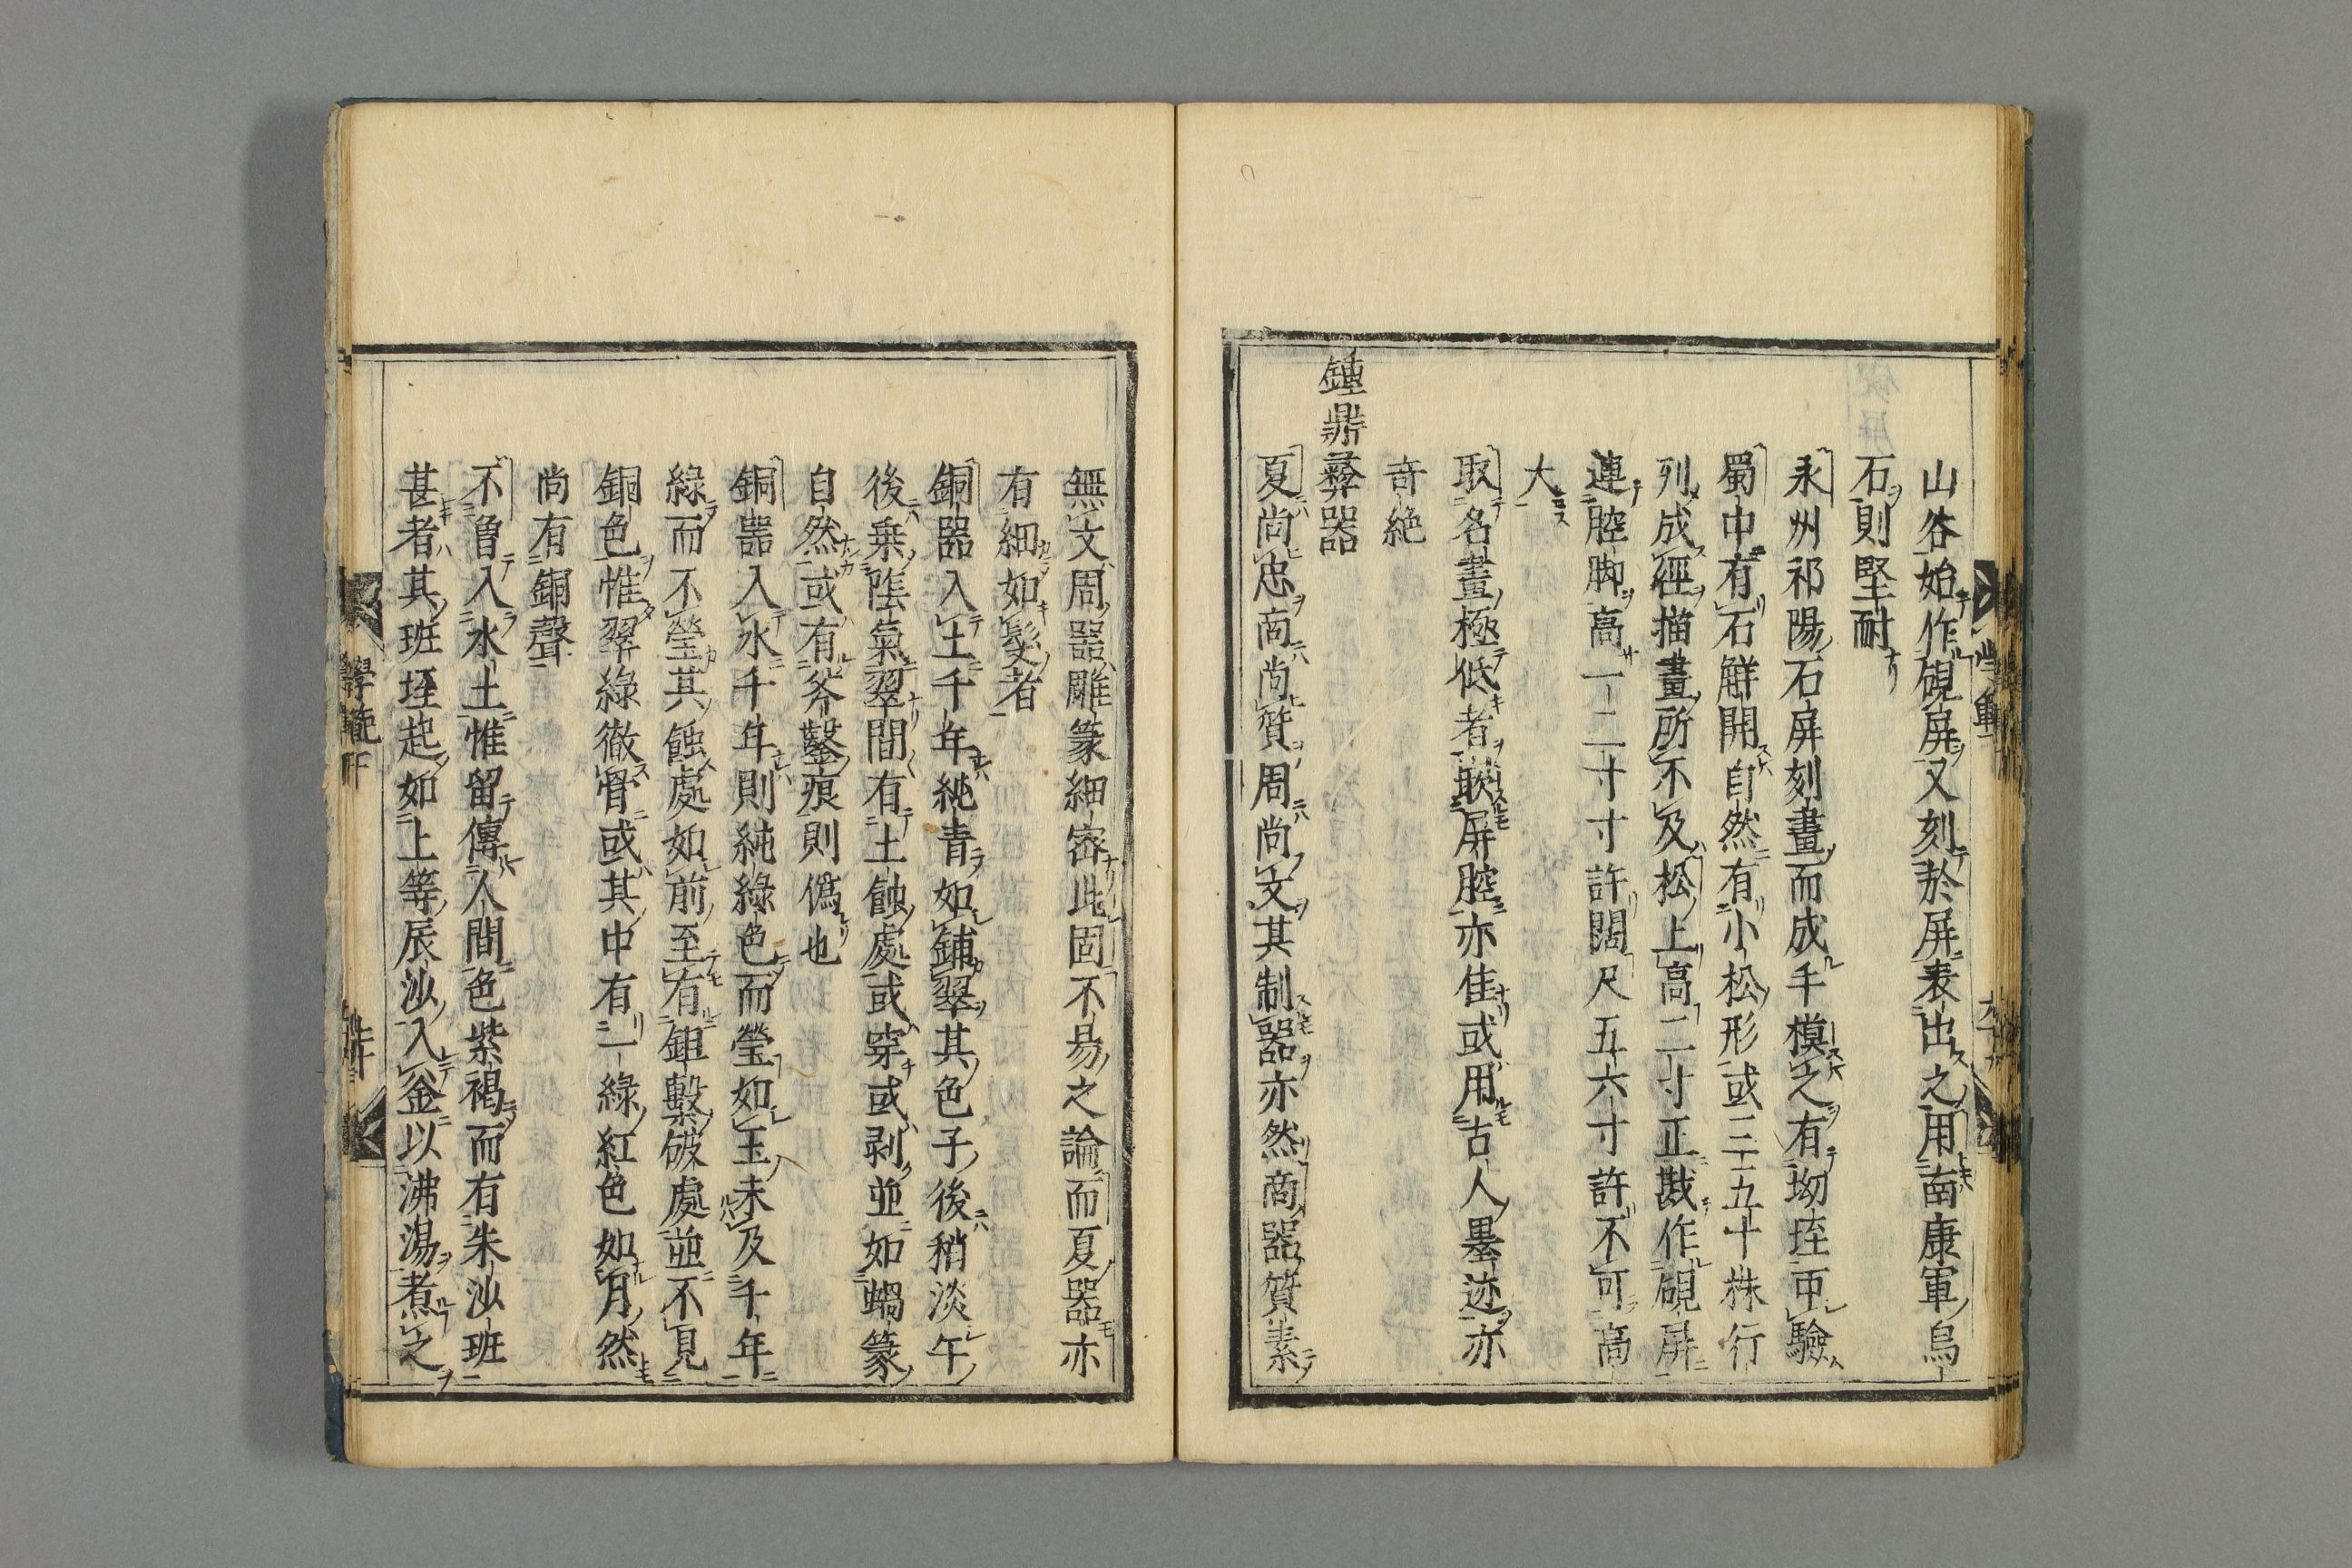 山谷始作硯屏又刻於屏表出之用南康軍烏
石則堅耐
永州祁陽石屏刻畫而成手模之有坳垤可驗
蜀中有石觧開自然有小松形或三五十株行
列成徑描畫所不及松上高二寸正戡作硯屏
連腔脚高一二寸寸許闊尺五六寸許不可高
大
取名畫極低者嵌屏腔亦佳或用古人墨迹亦
奇絶
鍾鼎彜器
夏尚忠商尚質周尚文其制器亦然商器質素
無文周器雕篆細密此固不易之論而夏器亦
有細如髮者
銅器入土千年純青如鋪翠其色子後稍淡午
後乗陰氣翠間有土蝕處或穿或剥並如蝸篆
自然或有斧鑿痕則僞也
銅器入水千年則純綠色而瑩如玉未及千年
綠而不瑩其蝕處如前至有鉏擊破處並不見
銅色惟翠綠徹骨或其中有一綠紅色如月然
尚有銅聲
不曽入水土惟留傳人間色紫褐而有朱沙班
甚者其班垤起如上等辰沙入釡以沸湯煮之
學範下